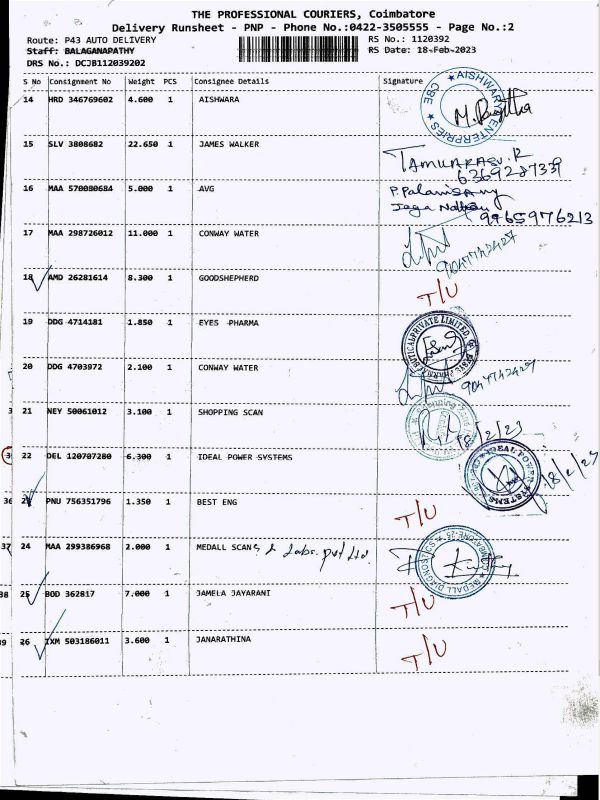 THE PROFESSIONAL COURIERS, Coimbatore
Delivery Runsheet - PNP - Phone No.:0422-3505555 - Page No.:2
Route: P43 AUTO DELIVERY RS No.: 1120392
Staff: BALAGANAPATHY RS Date: 18-Feb-2023
DRS No.: DCJB112039202
S No Consignment No Weight PCS Consignee Details Signature
14 HRD 346769602 4.600 1 AISHWARA
AISHWARYA ENTERPRISES CBE
15 SLV 3808682 22.650 1 JAMES WALKER
6369287339
16 MAA 570080684 5.000 1 AVG P.Palanisamy
9965976213
17 MAA 298726012 11.000 1 CONWAY WATER
9047742427
18 AMD 26281614 8.300 1 GOODSHEPHERD T/U
19 DDG 4714181 1.850 1 EYES PHARMA
20 DDG 4703972 2.100 1 CONWAY WATER 9047742427
3 21 NEY 50061012 3.100 1 SHOPPING SCAN 18/2/23
3 22 DEL 120707280 6.300 1 IDEAL POWER SYSTEMS IDEAL POWER SYSTEMS 18/2/23
36 23 PNU 756351796 1.350 1 BEST ENG T/U
37 24 MAA 299386968 2.000 1 MEDALL SCANS & Labs. pvt Ltd. MEDALL DIAGNOSTICS
38 25 BOD 362817 7.000 1 JAMELA JAYARANI T/U
39 26 IXM 503186011 3.600 1 JANARATHINA T/U